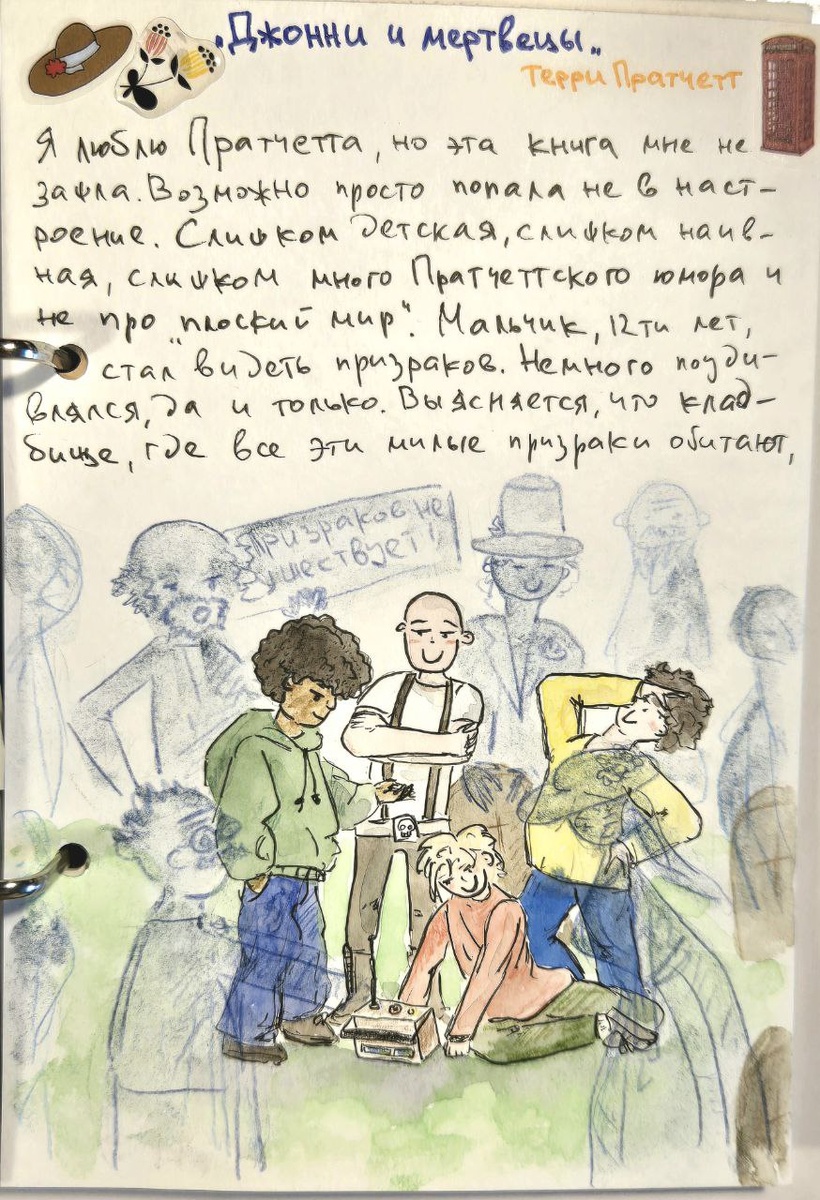 „Джонни и мертвецы„
Терри Пратчетт
Я люблю Пратчетта, но эта книга мне не
зашла. Возможно просто попала не в наст-
роение. Слишком детская, слишком наив-
ная, слишком много Пратчеттского юмора и
не про „плоский мир". Мальчик, 12ти лет,
стал видеть призраков. Немного поуди-
влялся, да и только. Выясняется, что клад-
бище, где все эти милые призраки обитают,
Призраков не
существует!